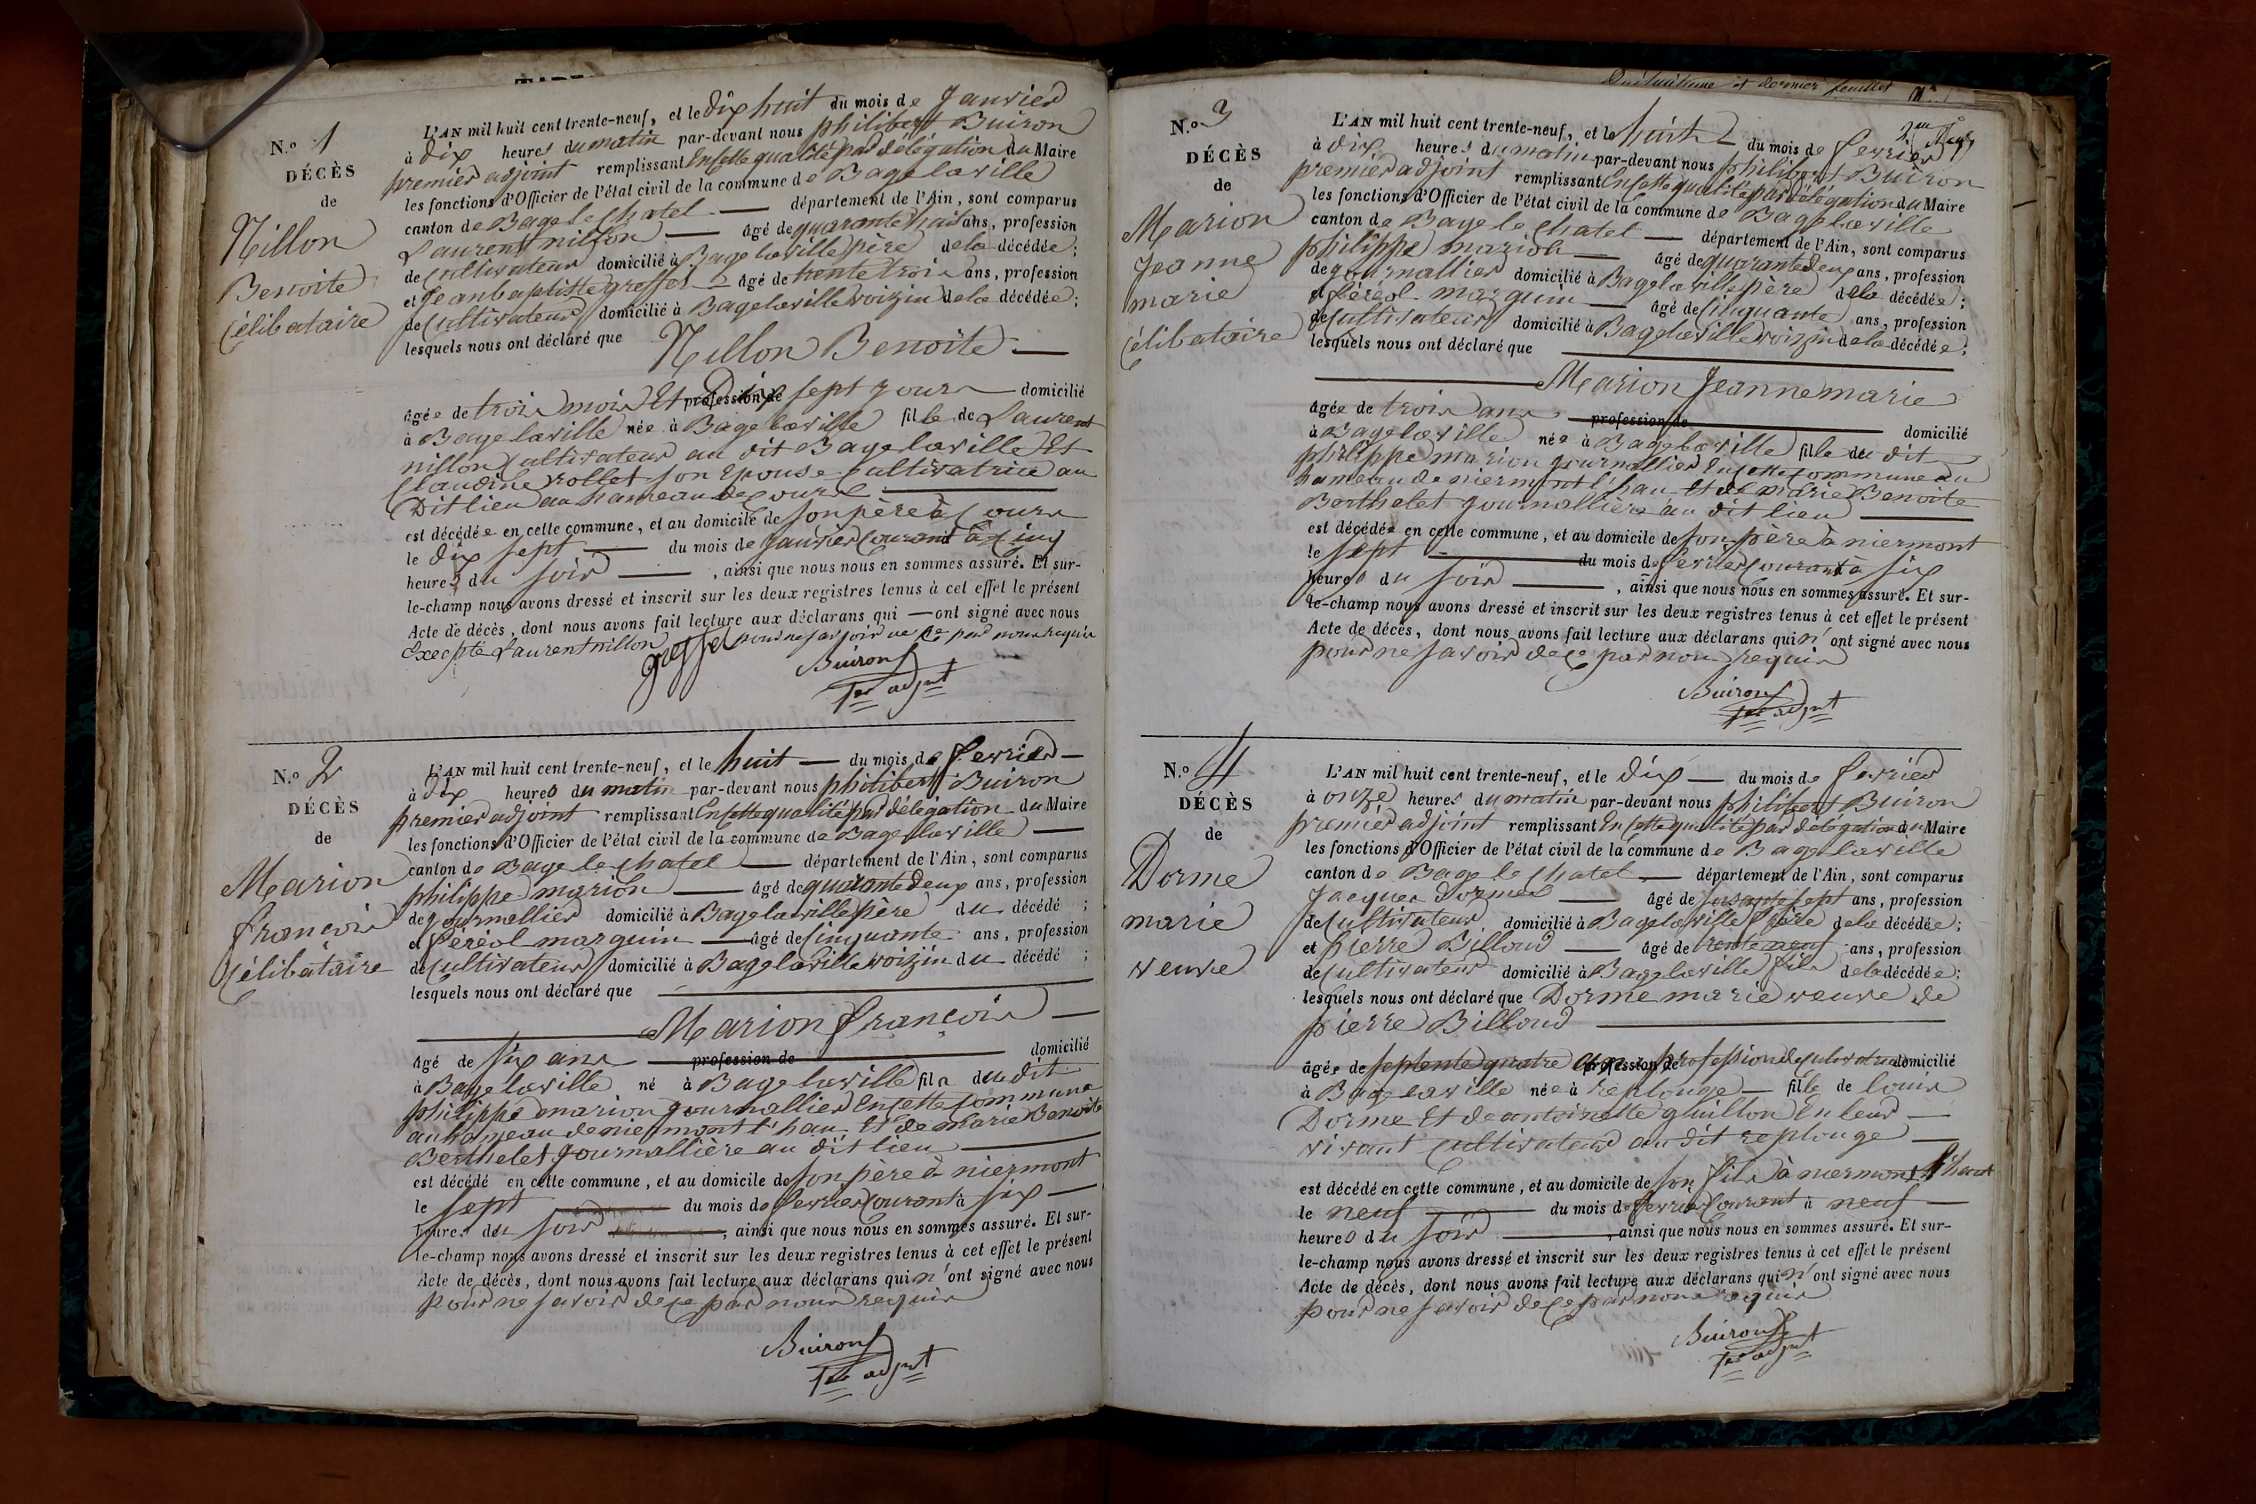 N.º 1
DÉCÈS
de
Nillon
Benoite
Célibataire
L'AN mil huit cent trente-neuf, et le dix huit du mois de Janvier
à dix heures du matin par-devant nous philibert Buiron
premier adjoint remplissant En cette qualité par délégation du Maire
les fonctions d'Officier de l'état civil de la commune de Bagelaville
canton de Bage le chatel — département de l'Ain, sont comparus
Laurent nillon — âgé de quarante huit ans, profession
de Cultivateur domicilié à Bagelaville père de la décédée;
et Jean baptiste greffet — âgé de trente trois ans, profession
de Cultivateur domicilié à Bagelaville voizin de la décédée;
lesquels nous ont déclaré que Nillon Benoite —
âgée de trois mois Et Dix sept jours — domicilié
à Bagelaville née à Bagelaville fille de Laurent
nillon Cultivateur au dit Bagelaville Et
Claudine rollet son Epouse Cultivatrice au
Dit lieu au hameau de cours —
est décédée en cette commune, et au domicile de son père à Cours
le dix sept — du mois de janvier Courant à Cinq
heures du soir —, ainsi que nous nous en sommes assuré. Et sur-
le-champ nous avons dressé et inscrit sur les deux registres tenus à cet effet le présent
Acte de décès, dont nous avons fait lecture aux déclarans qui — ont signé avec nous
Excepté Laurent nillon pour ne savoir de ce par nous requis
greffet
Buiron
1er adjnt
N.º 2
DÉCÈS
de
Marion
françois
Célibataire
L'AN mil huit cent trente-neuf, et le huit — du mois de fevrier —
à dix heures du matin par-devant nous philibert Buiron
premier adjoint remplissant En cette qualité par délégation du Maire
les fonctions d'Officier de l'état civil de la commune de Bagelaville —
canton de Bage le chatel — département de l'Ain, sont comparus
philippe marion — âgé de quarante Deux ans, profession
de journallier domicilié à Bagelaville père du décédé;
et féréol marguin — âgé de Cinquante ans, profession
de Cultivateur domicilié à Bagelaville voizin du décédé;
lesquels nous ont déclaré que —
— Marion françois —
âgé de six ans — profession de — domicilié
à Bagelaville né à Bagelaville fils du dit
philippe marion journallier En cette Commune
au hameau de niermont l'hau Et de marie Benoite
Berthelet journallière au dit lieu —
est décédé en cette commune, et au domicile de son père à niermont
le sept — du mois de fevrier Courant à six —
heures du soir —, ainsi que nous nous en sommes assuré. Et sur-
le-champ nous avons dressé et inscrit sur les deux registres tenus à cet effet le présent
Acte de décès, dont nous avons fait lecture aux déclarans qui n'ont signé avec nous
pour ne savoir de ce par nous requis
Buiron
1er adjnt
et dernier feuillet
N.º 3
DÉCÈS
de
Marion
Jeanne
marie
Célibataire
L'AN mil huit cent trente-neuf, et le huit — du mois de fevrier
à dix heures du matin par-devant nous philibert Buiron
premier adjoint remplissant En cette qualité par délégation du Maire
les fonctions d'Officier de l'état civil de la commune de Bagelaville
canton de Bage le chatel — département de l'Ain, sont comparus
philippe marion — âgé de quarante deux ans, profession
de journallier domicilié à Bagelaville père de la décédée;
et féréol marguin — âgé de Cinquante ans, profession
de Cultivateur domicilié à Bagelaville voizin de la décédée;
lesquels nous ont déclaré que —
— Marion Jeanne marie
âgée de trois ans — profession de — domicilié
à Bagelaville née à Bagelaville fille du dit
philippe marion journallier En cette Commune au
hameau de niermont l'hau Et de marie Benoite
Berthelet journallière au dit lieu —
est décédée en cette commune, et au domicile de son père à niermont
le sept — du mois de fevrier Courant à six
heures du soir —, ainsi que nous nous en sommes assuré. Et sur-
le-champ nous avons dressé et inscrit sur les deux registres tenus à cet effet le présent
Acte de décès, dont nous avons fait lecture aux déclarans qui n'ont signé avec nous
pour ne savoir de ce par nous requis
Buiron
1er adjnt
N.º 4
DÉCÈS
de
Dorme
marie
veuve
L'AN mil huit cent trente-neuf, et le dix — du mois de fevrier
à onze heures du matin par-devant nous philibert Buiron
premier adjoint remplissant En cette qualité par délégation du Maire
les fonctions d'Officier de l'état civil de la commune de Bagelaville
canton de Bage le chatel — département de l'Ain, sont comparus
Jacques Dorme — âgé de soisante sept ans, profession
de Cultivateur domicilié à Bagelaville frère de la décédée;
et pierre Billoud — âgé de trente neuf ans, profession
de Cultivateur domicilié à Bagelaville fils de la décédée;
lesquels nous ont déclaré que Dorme marie veuve de
pierre Billoud —
âgée de septente quatre ans profession de cultivatrice domicilié
à Bagelaville née à replonge — fille de louis
Dorme Et de antoinette guillon En leur —
vivant Cultivateur au dit replonge —
est décédé en cette commune, et au domicile de son fils à niermont l'haut
le neuf — du mois de fevrier Courant à neuf —
heures du soir —, ainsi que nous nous en sommes assuré. Et sur-
le-champ nous avons dressé et inscrit sur les deux registres tenus à cet effet le présent
Acte de décès, dont nous avons fait lecture aux déclarans qui n'ont signé avec nous
pour ne savoir de ce par nous requis
Buiron
1er adjnt